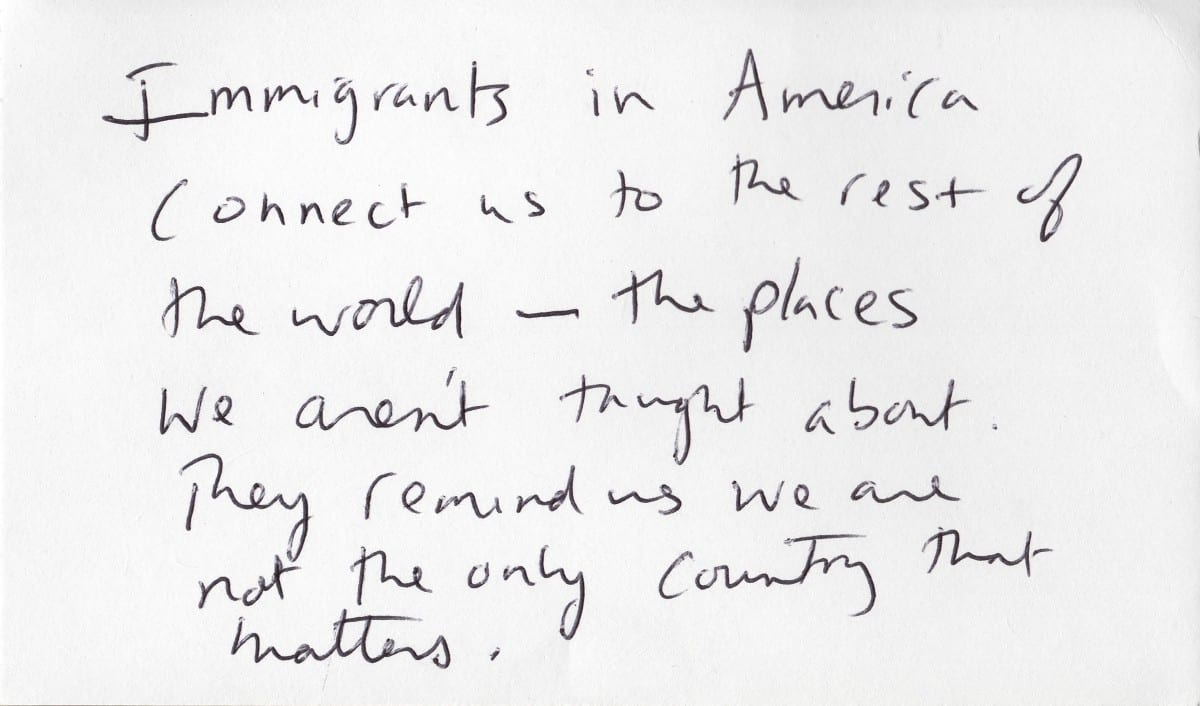 Immigrants in America
Connect us to the rest of
the world — the places
we aren't taught about.
They remind us we are
not the only country that
matters.